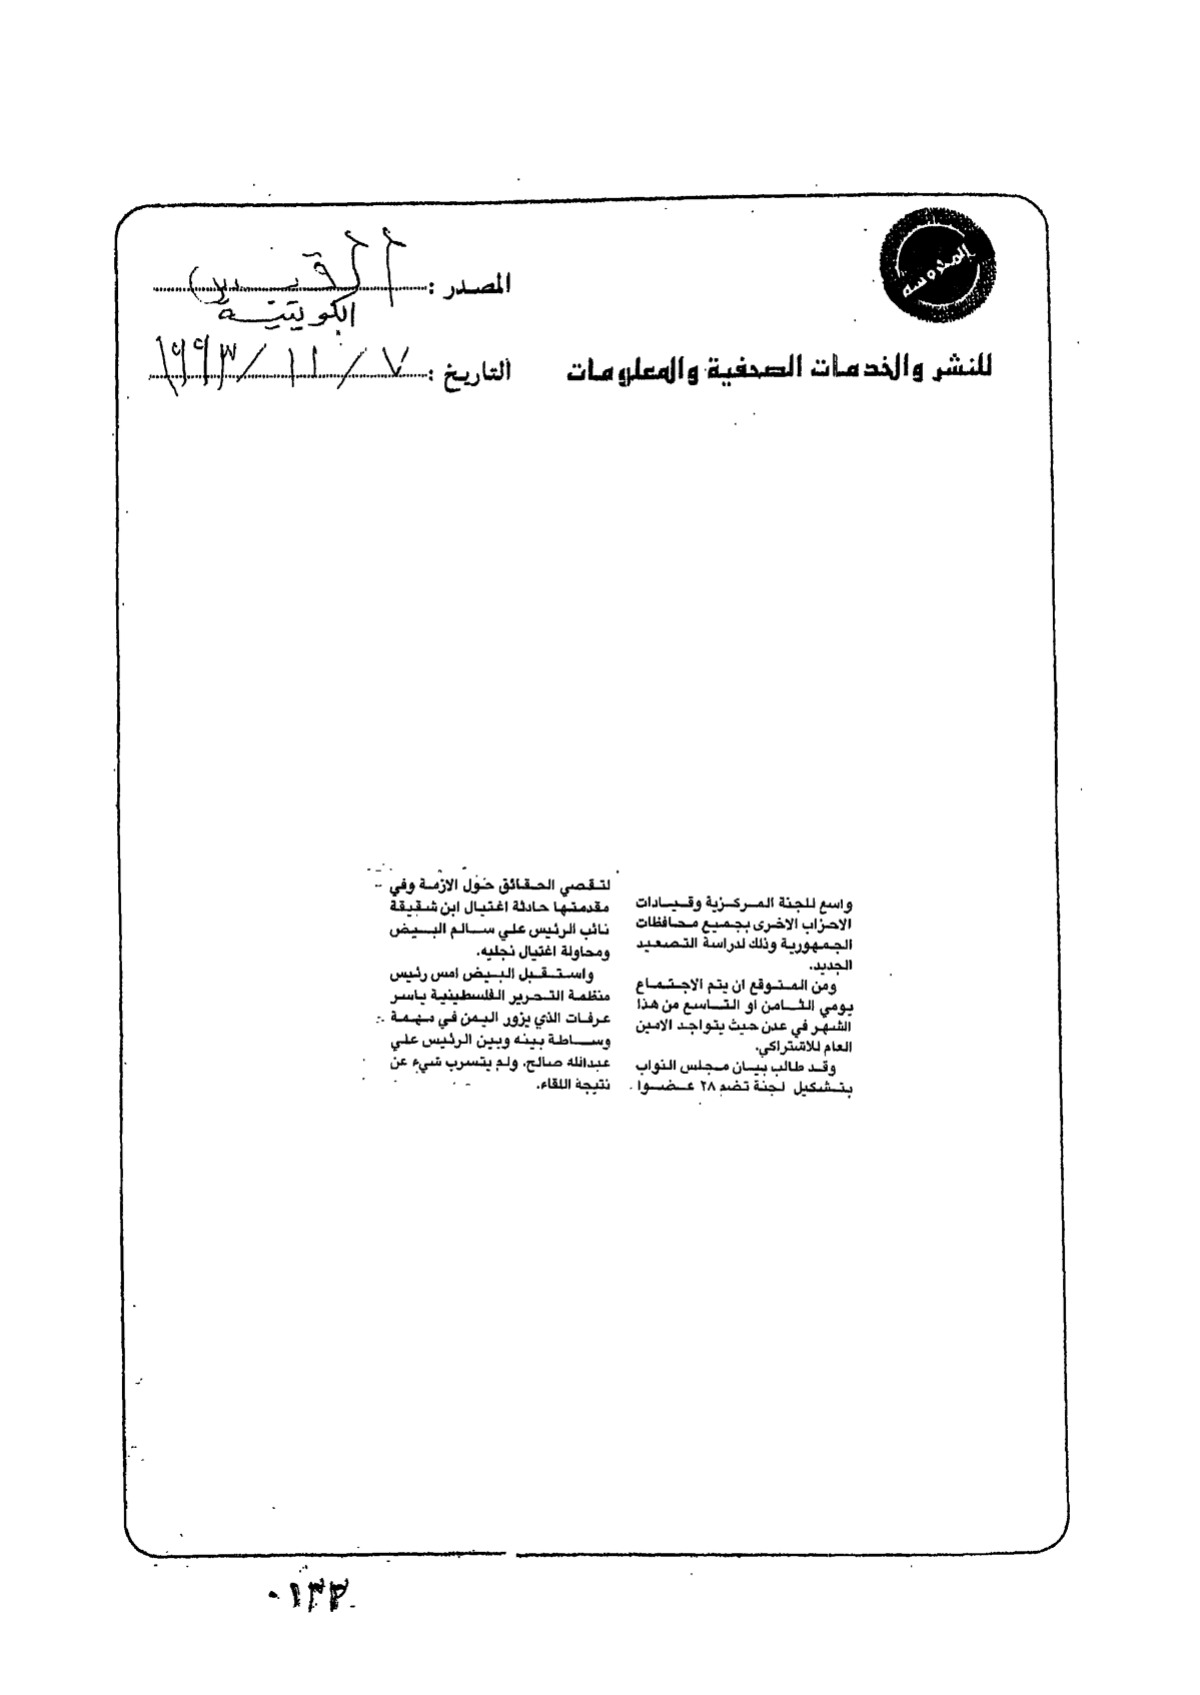 المحروسة
للنشر والخدمات الصحفية والمعلومات
المصدر :
الكويتية
التاريخ : ٧ / ١١ / ١٩٩٣
واسع للجنة المركزية وقيادات
الاحزاب الاخرى بجميع محافظات
الجمهورية وذلك لدراسة التصعيد
الجديد.
ومن المتوقع ان يتم الاجتماع
يومي الثامن او التاسع من هذا
الشهر في عدن حيث يتواجد الامين
العام للاشتراكي.
وقد طالب بيان مجلس النواب
بتشكيل لجنة تضم ٢٨ عضوا
لتقصي الحقائق حول الازمة وفي
مقدمتها حادثة اغتيال ابن شقيقة
نائب الرئيس علي سالم البيض
ومحاولة اغتيال نجليه.
واستقبل البيض امس رئيس
منظمة التحرير الفلسطينية ياسر
عرفات الذي يزور اليمن في مهمة
وساطة بينه وبين الرئيس علي
عبدالله صالح. ولم يتسرب شيء عن
نتيجة اللقاء.
٠١٣٣